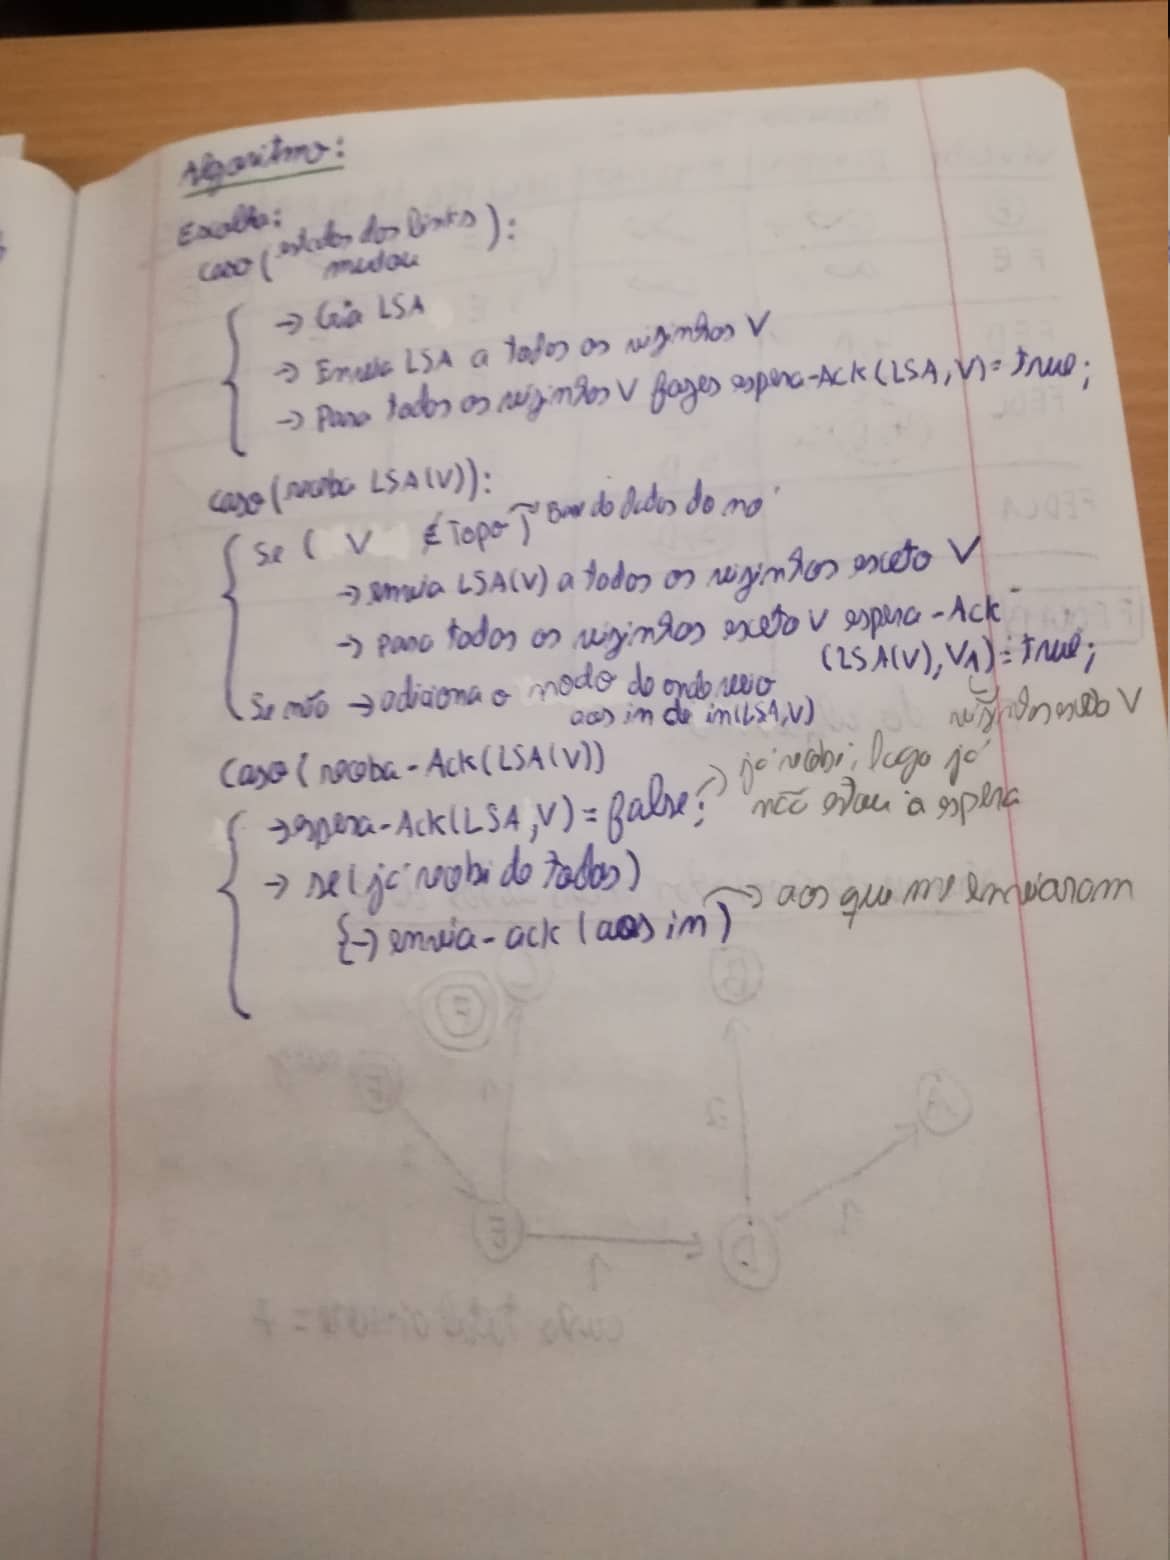 Algoritmo:
Escolha:
caso (estados dos links mudou):
→ Cria LSA
→ Envia LSA a todos os vizinhos V
→ Para todos os vizinhos V fazes espera-Ack(LSA, V) = true;
caso (receba LSA(V)):
Se ( V ∉ Topo) → Base de dados do nó
→ envia LSA(V) a todos os vizinhos exceto V
→ para todos os vizinhos exceto V espera-Ack
(LSA(V), V1) = true;
vizinhos exceto V
Se não → adiciona o nodo de onde veio
aos in de in(LSA,V)
Caso (receba-Ack(LSA(V))
→ espera-Ack(LSA, V) = false; → já recebi, logo já
não estou à espera
→ se (já recebi de todos)
{→ envia-ack (aos in) → aos que me enviaram